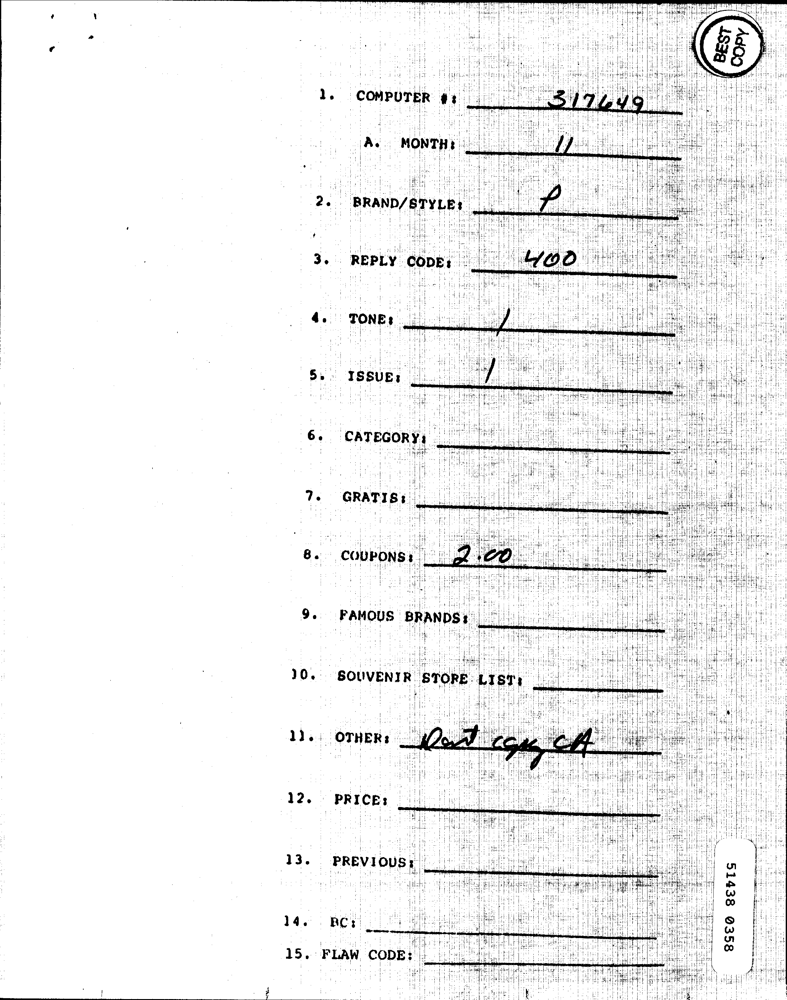 BEST
COPY
1. COMPUTER #: 317649
A. MONTH: 11
2. BRAND/STYLE: P
3. REPLY CODE: 400
4. TONE: 1
5. ISSUE: 1
6. CATEGORY:
7. GRATIS:
8. COUPONS: 2.00
9. FAMOUS BRANDS:
10. SOUVENIR STORE LIST:
11. OTHER: Don't copy CA
12. PRICE:
13. PREVIOUS:
14. BC:
15. FLAW CODE:
51438 0358